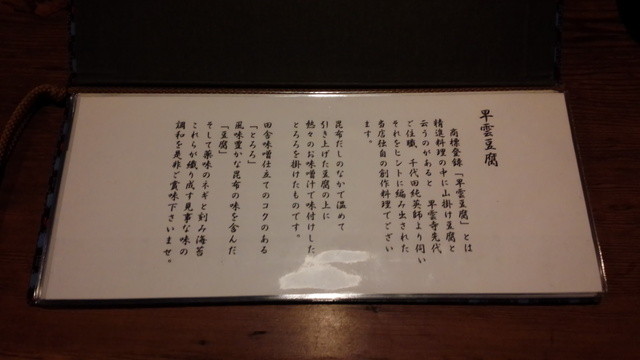 早雲豆腐
商標登録「早雲豆腐」とは
精進料理の中に山掛け豆腐と
云うのがあると 早雲寺先代
ご住職 千代田純英師より伺い
それをヒントに編み出された
当店独自の創作料理でござい
ます。
昆布だしのなかで温めて
引き上げた豆腐の上に
熱々のお味噌汁で味付けした
とろろを掛けたものです。
田舎味噌仕立てのコクのある
「とろろ」
風味豊かな昆布の味を含んだ
「豆腐」
そして薬味のネギと刻み海苔
これらが織り成す見事な味の
調和を是非ご賞味下さいませ。